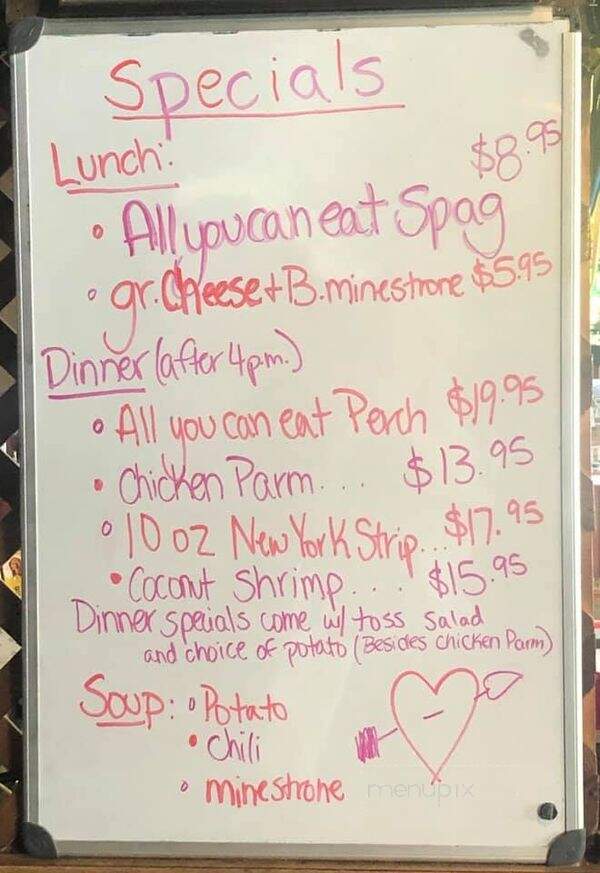 Specials
Lunch: $8.95
• All you can eat Spag
• gr. Cheese + B. minestrone $5.95
Dinner (after 4p.m.)
• All you can eat Perch $19.95
• Chicken Parm... $13.95
• 10 oz New York Strip... $17.95
• Coconut Shrimp.... $15.95
Dinner specials come w/ toss salad
and choice of potato (Besides Chicken Parm)
Soup: • Potato
• Chili
• minestrone
menupix